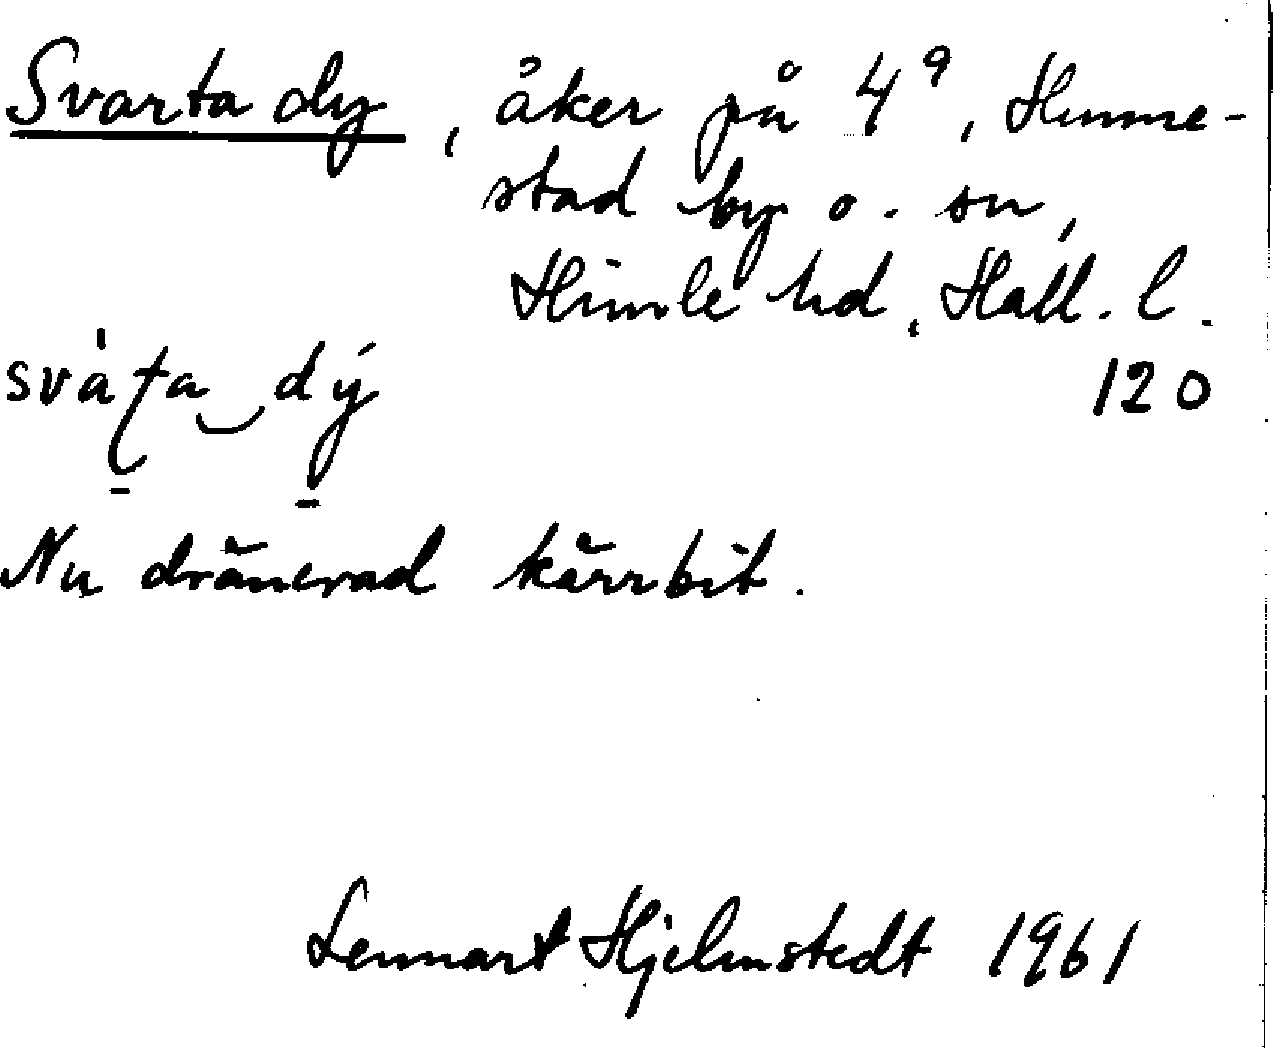 Svarta dy, åker på 4⁹, Hunne-
stad by o. sn,
Himle hd, Hall. l.
120
svàʈa‿dý
Nu dränerad kärrbit.
Lennart Hjelmstedt 1961